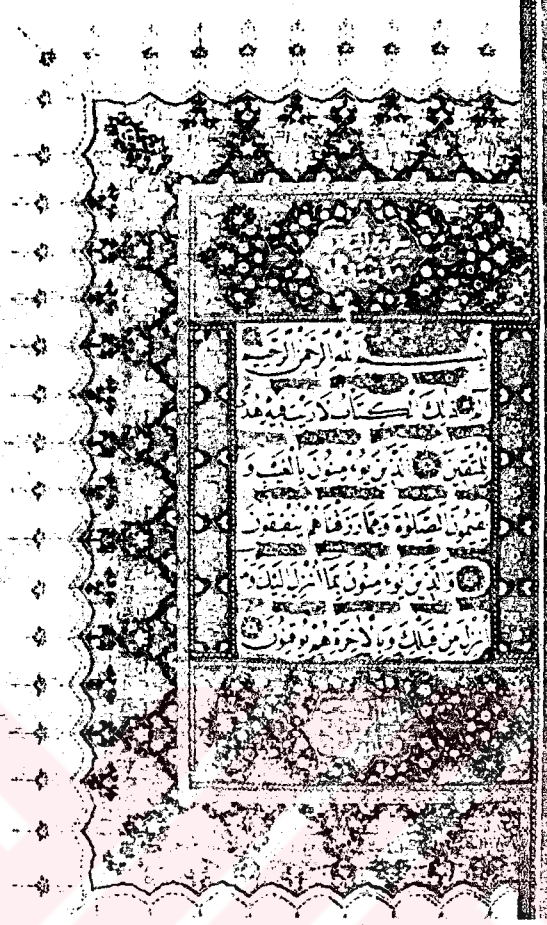 بسم الله الرحمن الرحيم
الم ذلك الكتاب لا ريب فيه هدى
للمتقين الذين يؤمنون بالغيب و
يقيمون الصلوة ومما رزقناهم ينفقون
والذين يؤمنون بما انزل اليك وما
انزل من قبلك وبالآخرة هم يوقنون